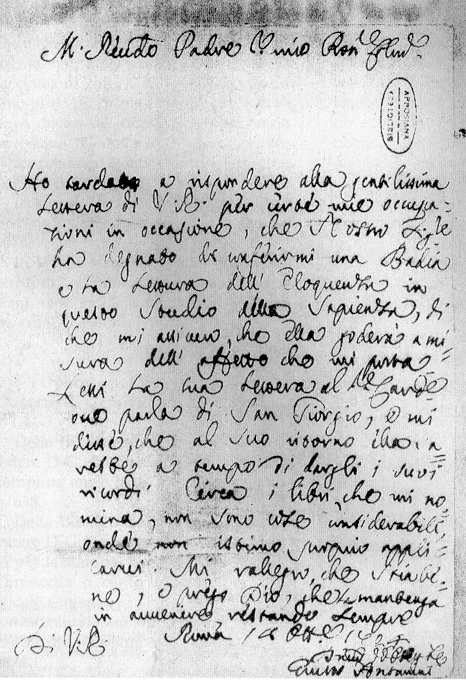 M. Rendo Padre
BIBLIOTECA
APROSIANA
Ho tardato a rispondere alla gentilissima
Lettera di V.R. per mie occupa-
zioni in occasione, che Nostro Sigre
ha degnato di conferirmi una Badia
e la Lettura dell' Eloquenza in
questo Studio della Sapienza, di
che mi assicuro, che ella goderà a mi
sura dell' affetto che mi porta
Lessi la sua Lettera al Carde
ove parla di San Giorgio, e mi
disse, che al suo ritorno ella a
rebbe a tempo di dargli i suoi
ricordi. Circa i libri, che mi no
mina, non sono cose considerabili,
onde non
carvici. Mi rallegro, che stia be
ne, e prego Dio, che la mantenga
in avvenire restando sempre
Di V.R. Roma